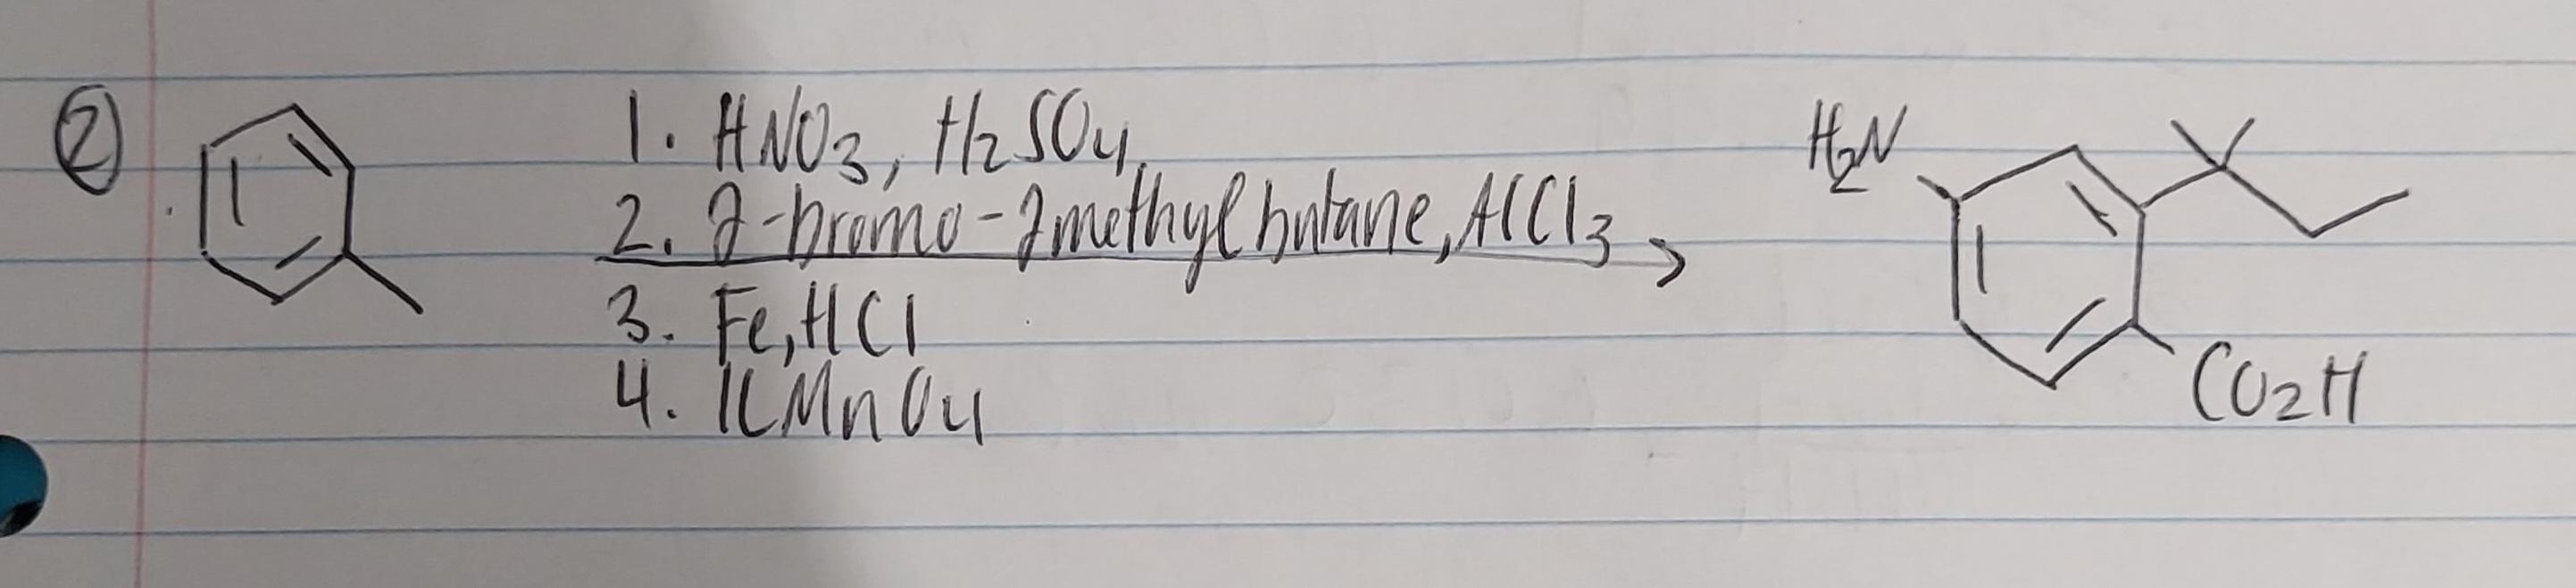 ②
1. HNO3, H2SO4
2. 2-bromo-2methylbutane, AlCl3
3. Fe, HCl
4. KMnO4
H2N
CO2H